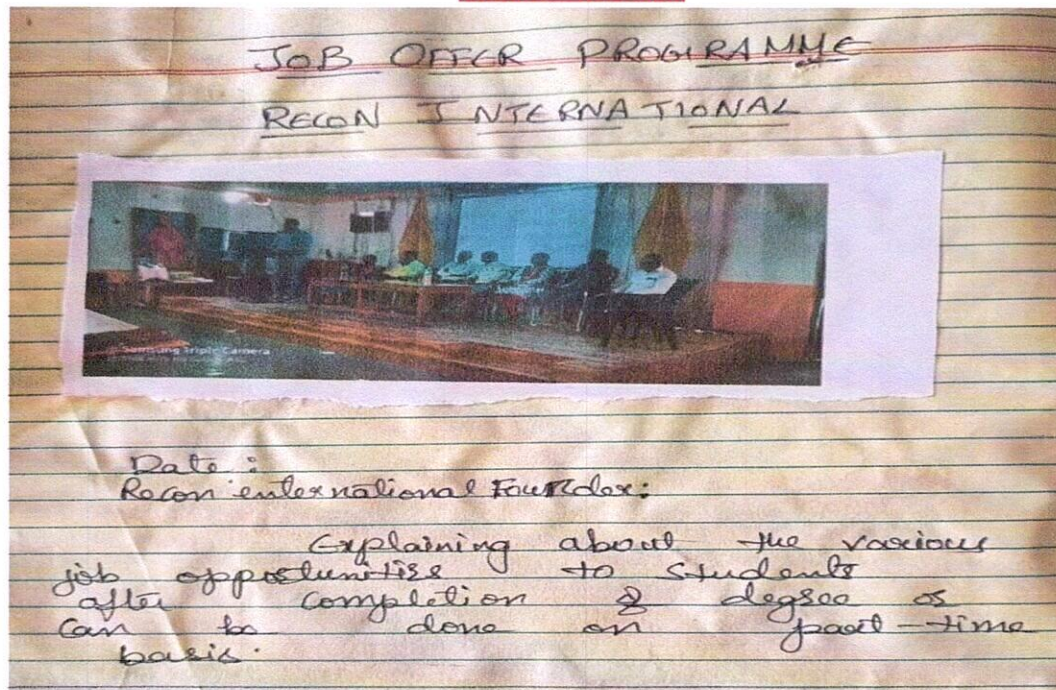 JOB OFFER PROGRAMME
RECON INTERNATIONAL
Samsung Triple Camera
Date :
Recon enternational Founder:
Explaining about the various
job oppostunitise to students
after completion & degree or
can be done on part-time
basis.